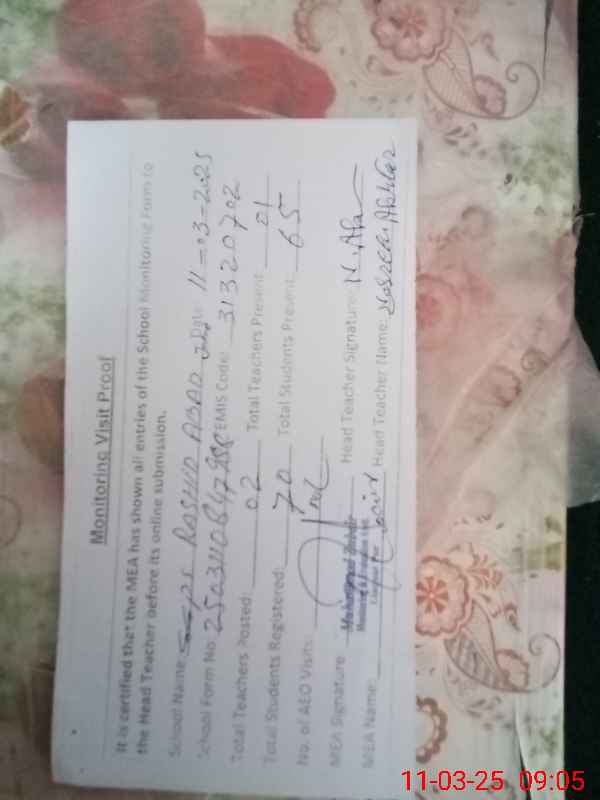 Monitoring Visit Proof
It is certified that the MEA has shown all entries of the School Monitoring Form to
the Head Teacher before its online submission.
School Name: PS RASHID ABAD Date: 11-03-2025
School Form No EMIS Code: 31320702
Total Teachers Posted: 02 Total Teachers Present: 01
Total Students Registered: 70 Total Students Present: 65
No. of AEO Visits:
MEA Signature Head Teacher Signature: N.Akh
MEA Name: Head Teacher Name: Akhter
11-03-25 09:05